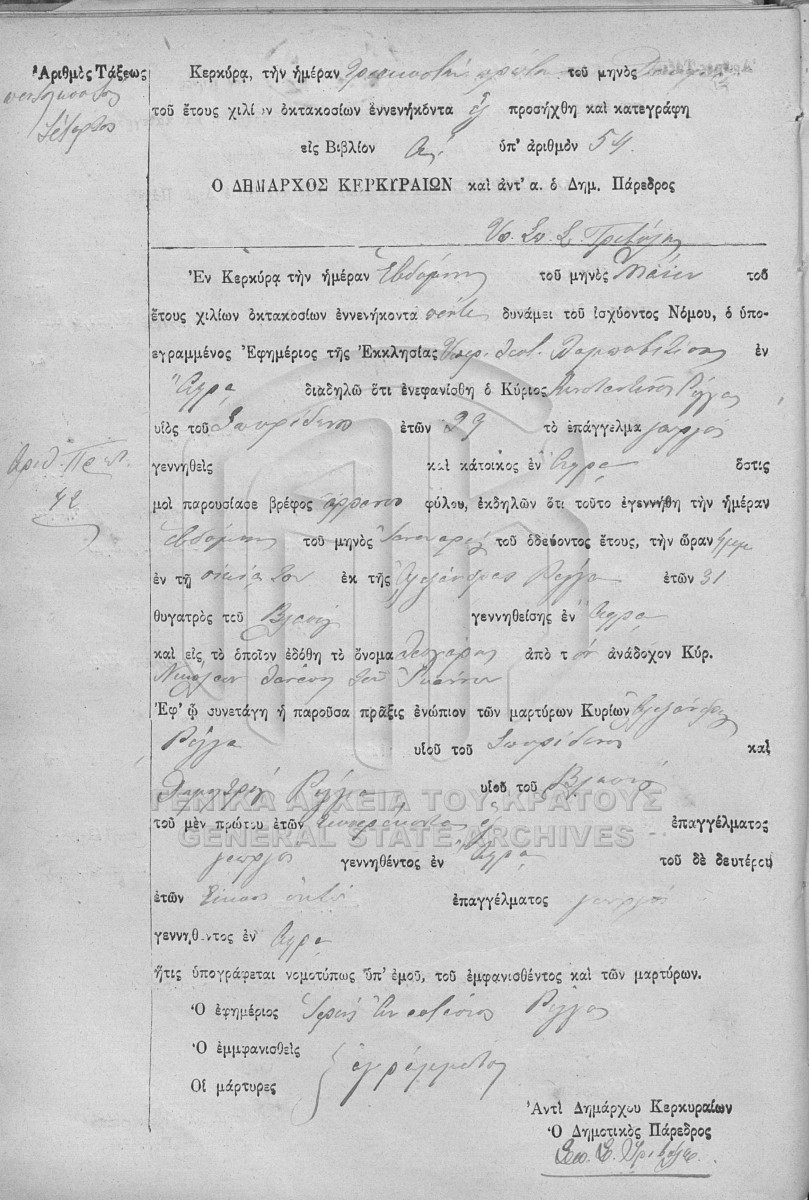 Ἀριθμὸς Τάξεως
πεντηκοστὸς
τέταρτος
Κερκύρᾳ, τὴν ἡμέραν τριακοστὴν πρώτην τοῦ μηνὸς
τοῦ ἔτους χιλίων ὀκτακοσίων ἐννενήκοντα ἓξ προσήχθη καὶ κατεγράφη
εἰς Βιβλίον ὑπ' ἀριθμὸν 54
Ὁ ΔΗΜΑΡΧΟΣ ΚΕΡΚΥΡΑΙΩΝ καὶ ἀντ' α. ὁ Δημ. Πάρεδρος
Ὑπ. Σπ. Σ. Τριβόλης
Ἐν Κερκύρᾳ τὴν ἡμέραν Ἑβδόμην τοῦ μηνὸς Μαΐου τοῦ
ἔτους χιλίων ὀκτακοσίων ἐννενήκοντα πέντε δυνάμει τοῦ ἰσχύοντος Νόμου, ὁ ὑπο-
εγραμμένος Ἐφημέριος τῆς Ἐκκλησίας Ὑπερ. Θεοτ. ἐν
Ἄγρᾳ διαδηλῶ ὅτι ἐνεφανίσθη ὁ Κύριος Κωνσταντῖνος Ρίγγας
υἱὸς τοῦ Σπυρίδωνος ἐτῶν 29 τὸ ἐπάγγελμα γεωργὸς
γεννηθεὶς καὶ κάτοικος ἐν Ἄγρᾳ ὅστις
Ἀριθ. Πρωτ.
42
μοὶ παρουσίασε βρέφος ἄρρενος φύλου, ἐκδηλῶν ὅτι τοῦτο ἐγεννήθη τὴν ἡμέραν
ἑβδόμην τοῦ μηνὸς Ἰανουαρίου τοῦ ὁδεύοντος ἔτους, τὴν ὥραν μμ
ἐν τῇ οἰκίᾳ του ἐκ τῆς Ἀλεξάνδρας Ρίγγα ἐτῶν 31
θυγατρὸς τοῦ γεννηθείσης ἐν Ἄγρᾳ
καὶ εἰς τὸ ὁποῖον ἐδόθη τὸ ὄνομα ἀπὸ τὸν ἀνάδοχον Κύρ.
Νικόλαον τοῦ Ἰωάννου
Ἐφ' ᾧ συνετάγη ἡ παροῦσα πρᾶξις ἐνώπιον τῶν μαρτύρων Κυρίων Ἀλεξάνδρου
Ρίγγα υἱοῦ τοῦ Σπυρίδωνος καὶ
Δημητρίου Ρίγγα υἱοῦ τοῦ
ΓΕΝΙΚΑ ΑΡΧΕΙΑ ΤΟΥ ΚΡΑΤΟΥΣ
GENERAL STATE ARCHIVES
τοῦ μὲν πρώτου ἐτῶν ἐπαγγέλματος
γεωργὸς γεννηθέντος ἐν Ἄγρᾳ τοῦ δὲ δευτέρου
ἐτῶν Εἴκοσι ὀκτὼ ἐπαγγέλματος γεωργὸς
γεννηθέντος ἐν Ἄγρᾳ
ἥτις ὑπογράφεται νομοτύπως ὑπ' ἐμοῦ, τοῦ ἐμφανισθέντος καὶ τῶν μαρτύρων.
Ὁ ἐφημέριος Ἱερεὺς Ἀναστάσιος Ρίγγας
Ὁ ἐμμφανισθεὶς
ἀγράμματοι
Οἱ μάρτυρες
Ἀντὶ Δημάρχου Κερκυραίων
Ὁ Δημοτικὸς Πάρεδρος
Σπ. Σ. Τριβόλης